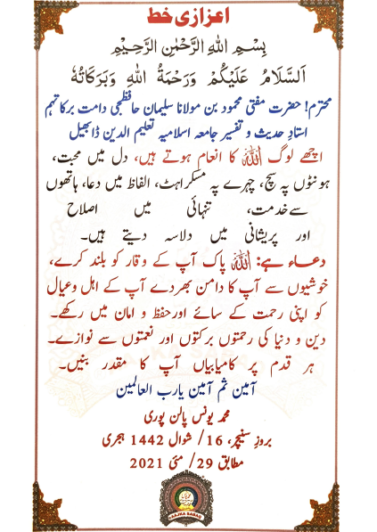 اعزازی خط
بِسْمِ اللهِ الرَّحْمٰنِ الرَّحِيْمِ
اَلسَّلَامُ عَلَيْكُمْ وَرَحْمَةُ اللهِ وَبَرَكَاتُهُ
محترم! حضرت مفتی محمود بن مولانا سلیمان حافظجی دامت برکاتہم
استاذِ حدیث و تفسیر جامعہ اسلامیہ تعلیم الدین ڈابھیل
اچھے لوگ اللہ کا انعام ہوتے ہیں، دل میں محبت،
ہونٹوں پہ سچ، چہرے پہ مسکراہٹ، الفاظ میں دعا، ہاتھوں
سے خدمت، تنہائی میں اصلاح
اور پریشانی میں دلاسہ دیتے ہیں۔
دعاء ہے: اللہ پاک آپ کے وقار کو بلند کرے،
خوشیوں سے آپ کا دامن بھر دے آپ کے اہل وعیال
کو اپنی رحمت کے سائے اور حفظ و امان میں رکھے۔
دین و دنیا کی رحمتوں برکتوں اور نعمتوں سے نوازے۔
ہر قدم پر کامیابیاں آپ کا مقدر بنیں۔
آمین ثم آمین یارب العالمین
محمد یونس پالن پوری
بروز سنیچر، 16/ شوال 1442 ہجری
مطابق 29/ مئی 2021